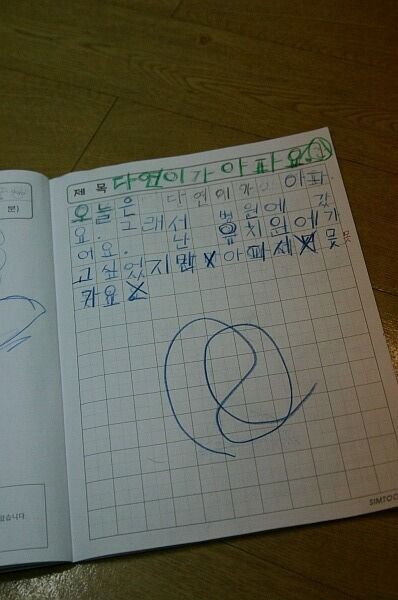 제 목 다연이가 아파요
오늘은 다연에가 아파
요. 그래서 병원에 갔
어요. 난 유치원에 가
고 싶었지만 x 아파서 x 못
가요 x
못
분)
있습니다
SIMTO